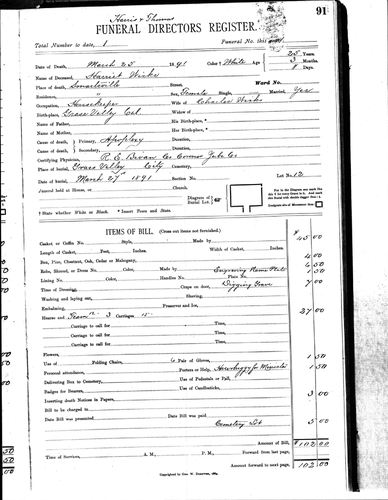 91
Harris & Thomas
FUNERAL DIRECTORS REGISTER.
Total Number to date, 1 Funeral No. this
Date of Death, March 25 1891 Color † White Age 25 Years
Name of Deceased, Harriet Wicks 5 Months
Place of death, Smartsville Street, 8 Days.
Residence, " Ward No.
Occupation, Housekeeper Sex, Female Single, Married, Yes
Birth-place, Grass Valley Cal. Wife of Charles Wicks
Name of Father, Widow of
Name of Mother, His Birth-place, *
Cause of Death, Primary, Apoplexy Her Birth-place, *
Cause of death, Secondary, Duration,
Certifying Physician, R. E. Bevan Co. Duration,
Place of burial, Grass Valley City
Date of burial, March 27th 1891 Section No. Lot No. 12
Funeral held at House, or Church.
Diagram of Burial Lot.
† State whether White or Black. * Insert Town and State.
ITEMS OF BILL. (Cross out items not furnished.)
Casket or Coffin No. Style, Made by $ 45 00
Length of Casket, Feet, Inches. Width of Casket, Inches
Box, Pine, Chestnut, Oak, Cedar or Mahogany, 4 00
Robe, Shroud, or Dress No. Color, Made by Engraving Name Plate 6 50
Lining No. Color, Handles No. Plate No. 1 50
Time of Dressing, Crape on door, Digging Grave 7 00
Washing and laying out, Shaving,
Embalming, Preserver and Ice,
Hearse and Team 12 3 Carriages 15 27 00
Carriage to call for Time,
Carriage to call for Time,
Carriage to call for Time,
Carriage to call for Time,
Flowers,
Use of Folding Chairs, 6 Pair of Gloves, 1 50
Personal attendance, Porters or Help, 1 50
Delivering Box to Cemetery, Use of Pedestals or Pall,
Badges for Bearers, Use of Candlesticks, 3 00
Inserting death Notices in Papers,
Bill to be charged to
Date Bill was presented Date Bill was paid
Cemetery Lot 5 00
Amount of Bill, $ 102 00
Time of Services, A. M., P. M., Forward from last page,
Amount forward to next page, 102 00
50
50
50